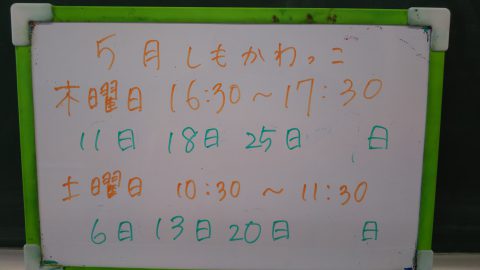 5月 しもかわっこ
木曜日 16:30～17:30
11日 18日 25日 日
土曜日 10:30～11:30
6日 13日 20日 日